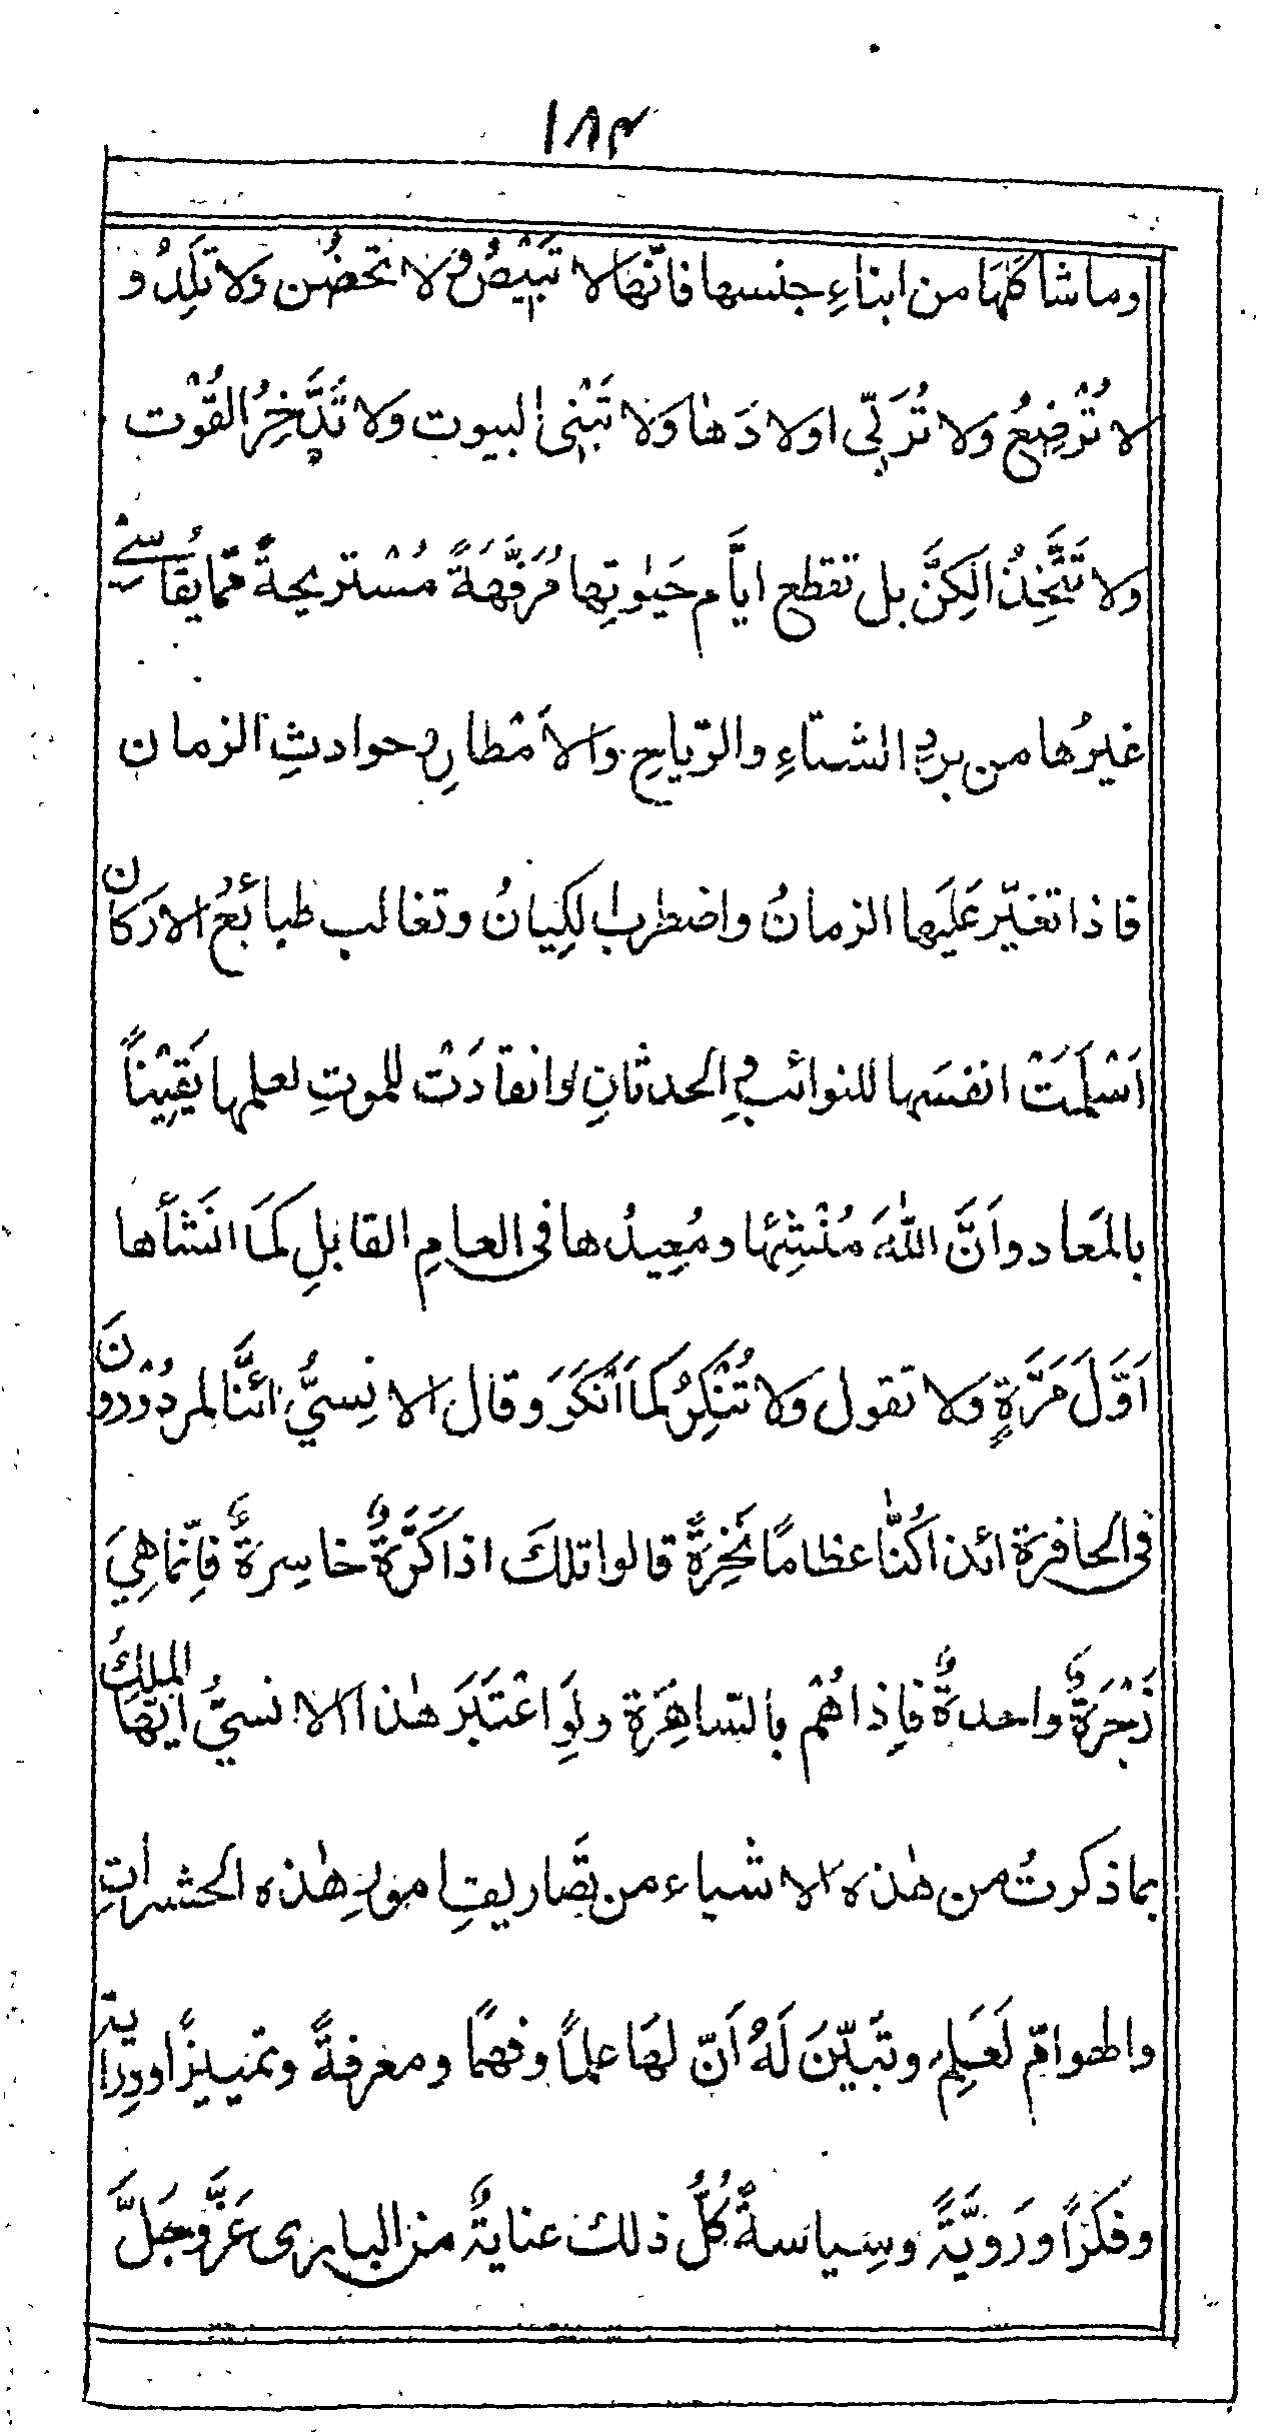 ١٨٣
وما شاكلَهَا من ابناءِ جنسها فانّها لا تَبَيْضُ و لا تحضُن ولا تَلِدُ و
لا تُرْضِعُ ولا تُرَبّى اولادَهٰا وَلا تَبْنِى البيوت ولا تَدَّخِرُ القُوْت
ولا تَتَّخِذُ الَكِنَّ بل تقطع ايَّام حَيٰوتِها مُرَفَّهَةً مُسْتريحةً مّما يُقاسےْ
غيرُها من بردِ الشتاءِ والرّياحِ والاَمْطارِ و حوادثِ الزمان
فاذا تغيّر عَلَيها الزمانُ واضطربَ الكِيانُ وتغالب طبائَعُ الاركان
اَسْلَمَتْ انفسَها للنوائبِ و الحدثانِ وانقادَتْ للموتِ لعلمها يَقِيْناً
بالمَعاد واَنَّ اللّٰهَ مُنْشِئها ومُعِيدُها فى العامِ القابلِ كمَا انَشأها
اَوَّلَ مَرَّةٍ ولا تقول ولا تُنْكِرُ كما اَنْكَرَ وقال الانِسىُّ ائنَّا لمردُوْدونَ
فى الحافرة ائذا كُنّٰا عظامًا نَخِرةً قالوا تلكَ اذا كَرَّةٌ خاسِرةٌ فاِنّما هِيَ
زَجْرَةٌ واحدةٌ فاِذا هُمْ بالسّاهِرَةِ ولَوِ اعْتَبَرَ هٰذا الانسىُّ ايّها الملكُ
بما ذكرتُ من هٰذه الاشياء من تصَاريفِ امورِ هٰذه الحشراتِ
والهوامّ لَعَلِمَ وتَبَيّنَ لَهُ اَنّ لهَا علمًا وفهمًا ومعرفةً وتمييزًا ودِرايةً
وفكرًا ورَويَّةً وسِياسةً كُلُّ ذلك عنايةٌ من البارى عَزَّ وجَلَّ